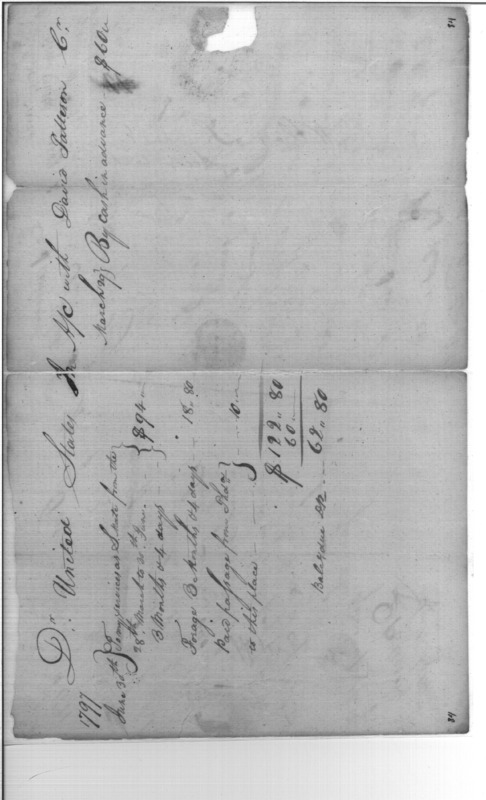 Dr. United States In A/C with David Patterson Cr.
1797
June 30th } To my services as S. Mate from the
28th March to 30th June } $94 "
3 Months & 4 days
Forage 3 Months & 4 days 18 " 80
Paid passage from Phila }
to this place 10 "
$ 122 " 80
60 "
Balance due 62 " 80
March 29 } By Cash in advance $60 "
84
84